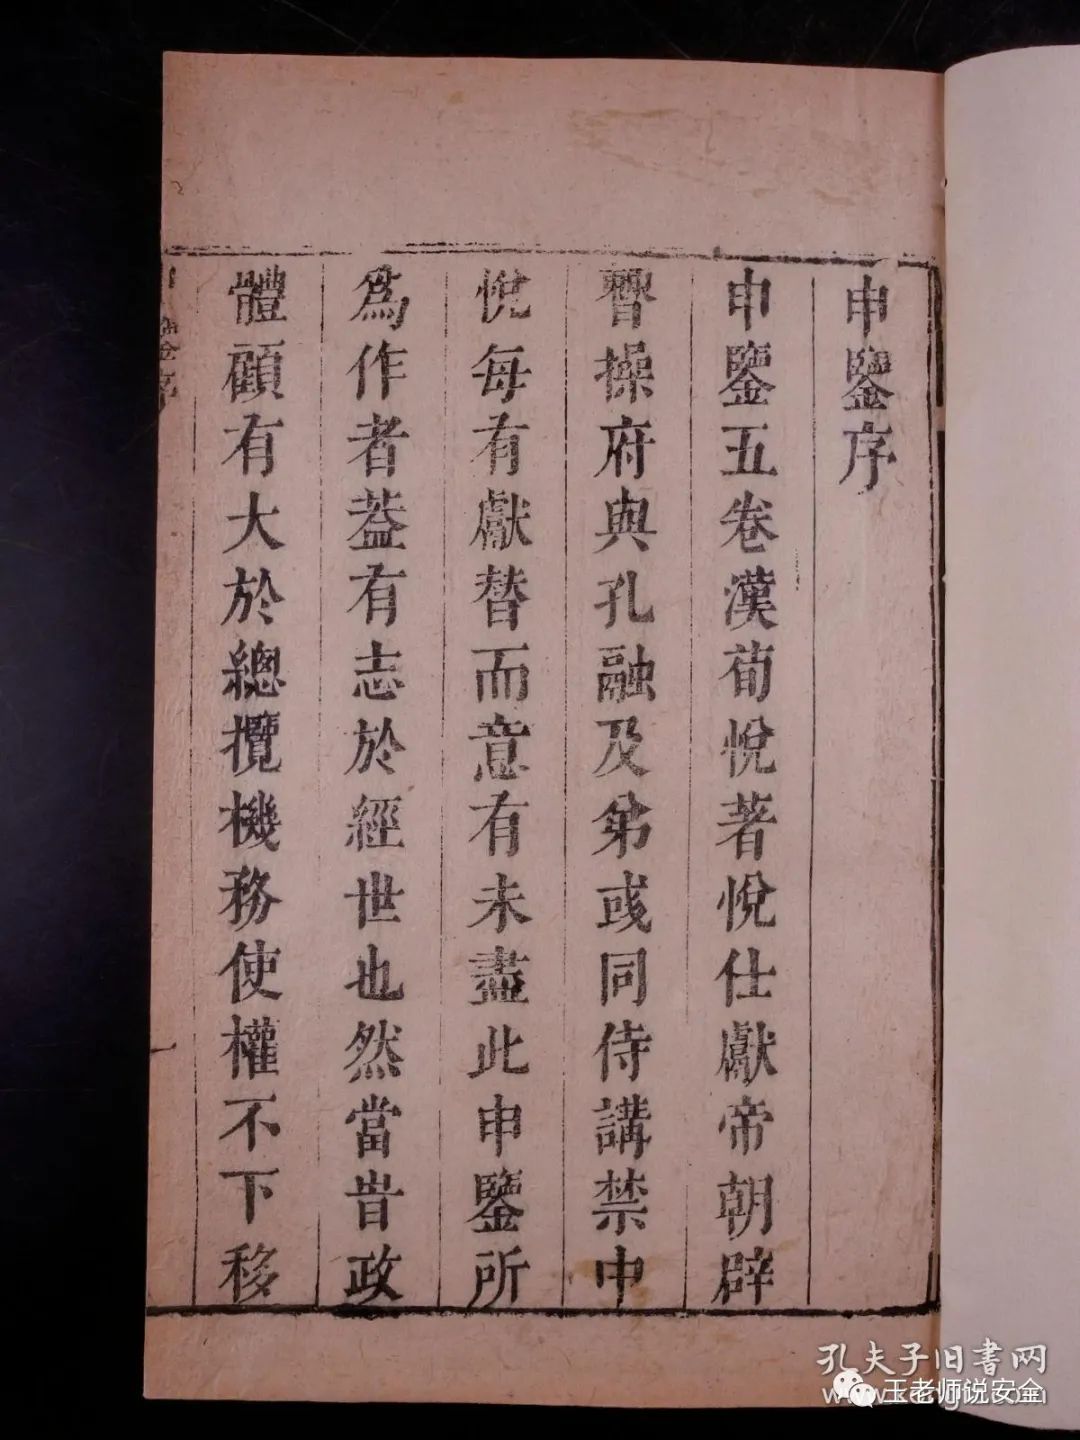 申鑒序
申鑒五卷漢荀悅著悅仕獻帝朝辟
曹操府與孔融及弟彧同侍講禁中
悅每有獻替而意有未盡此申鑒所
為作者蓋有志於經世也然當旹政
體顧有大於總攬機務使權不下移
孔夫子旧书网
王老师说安全